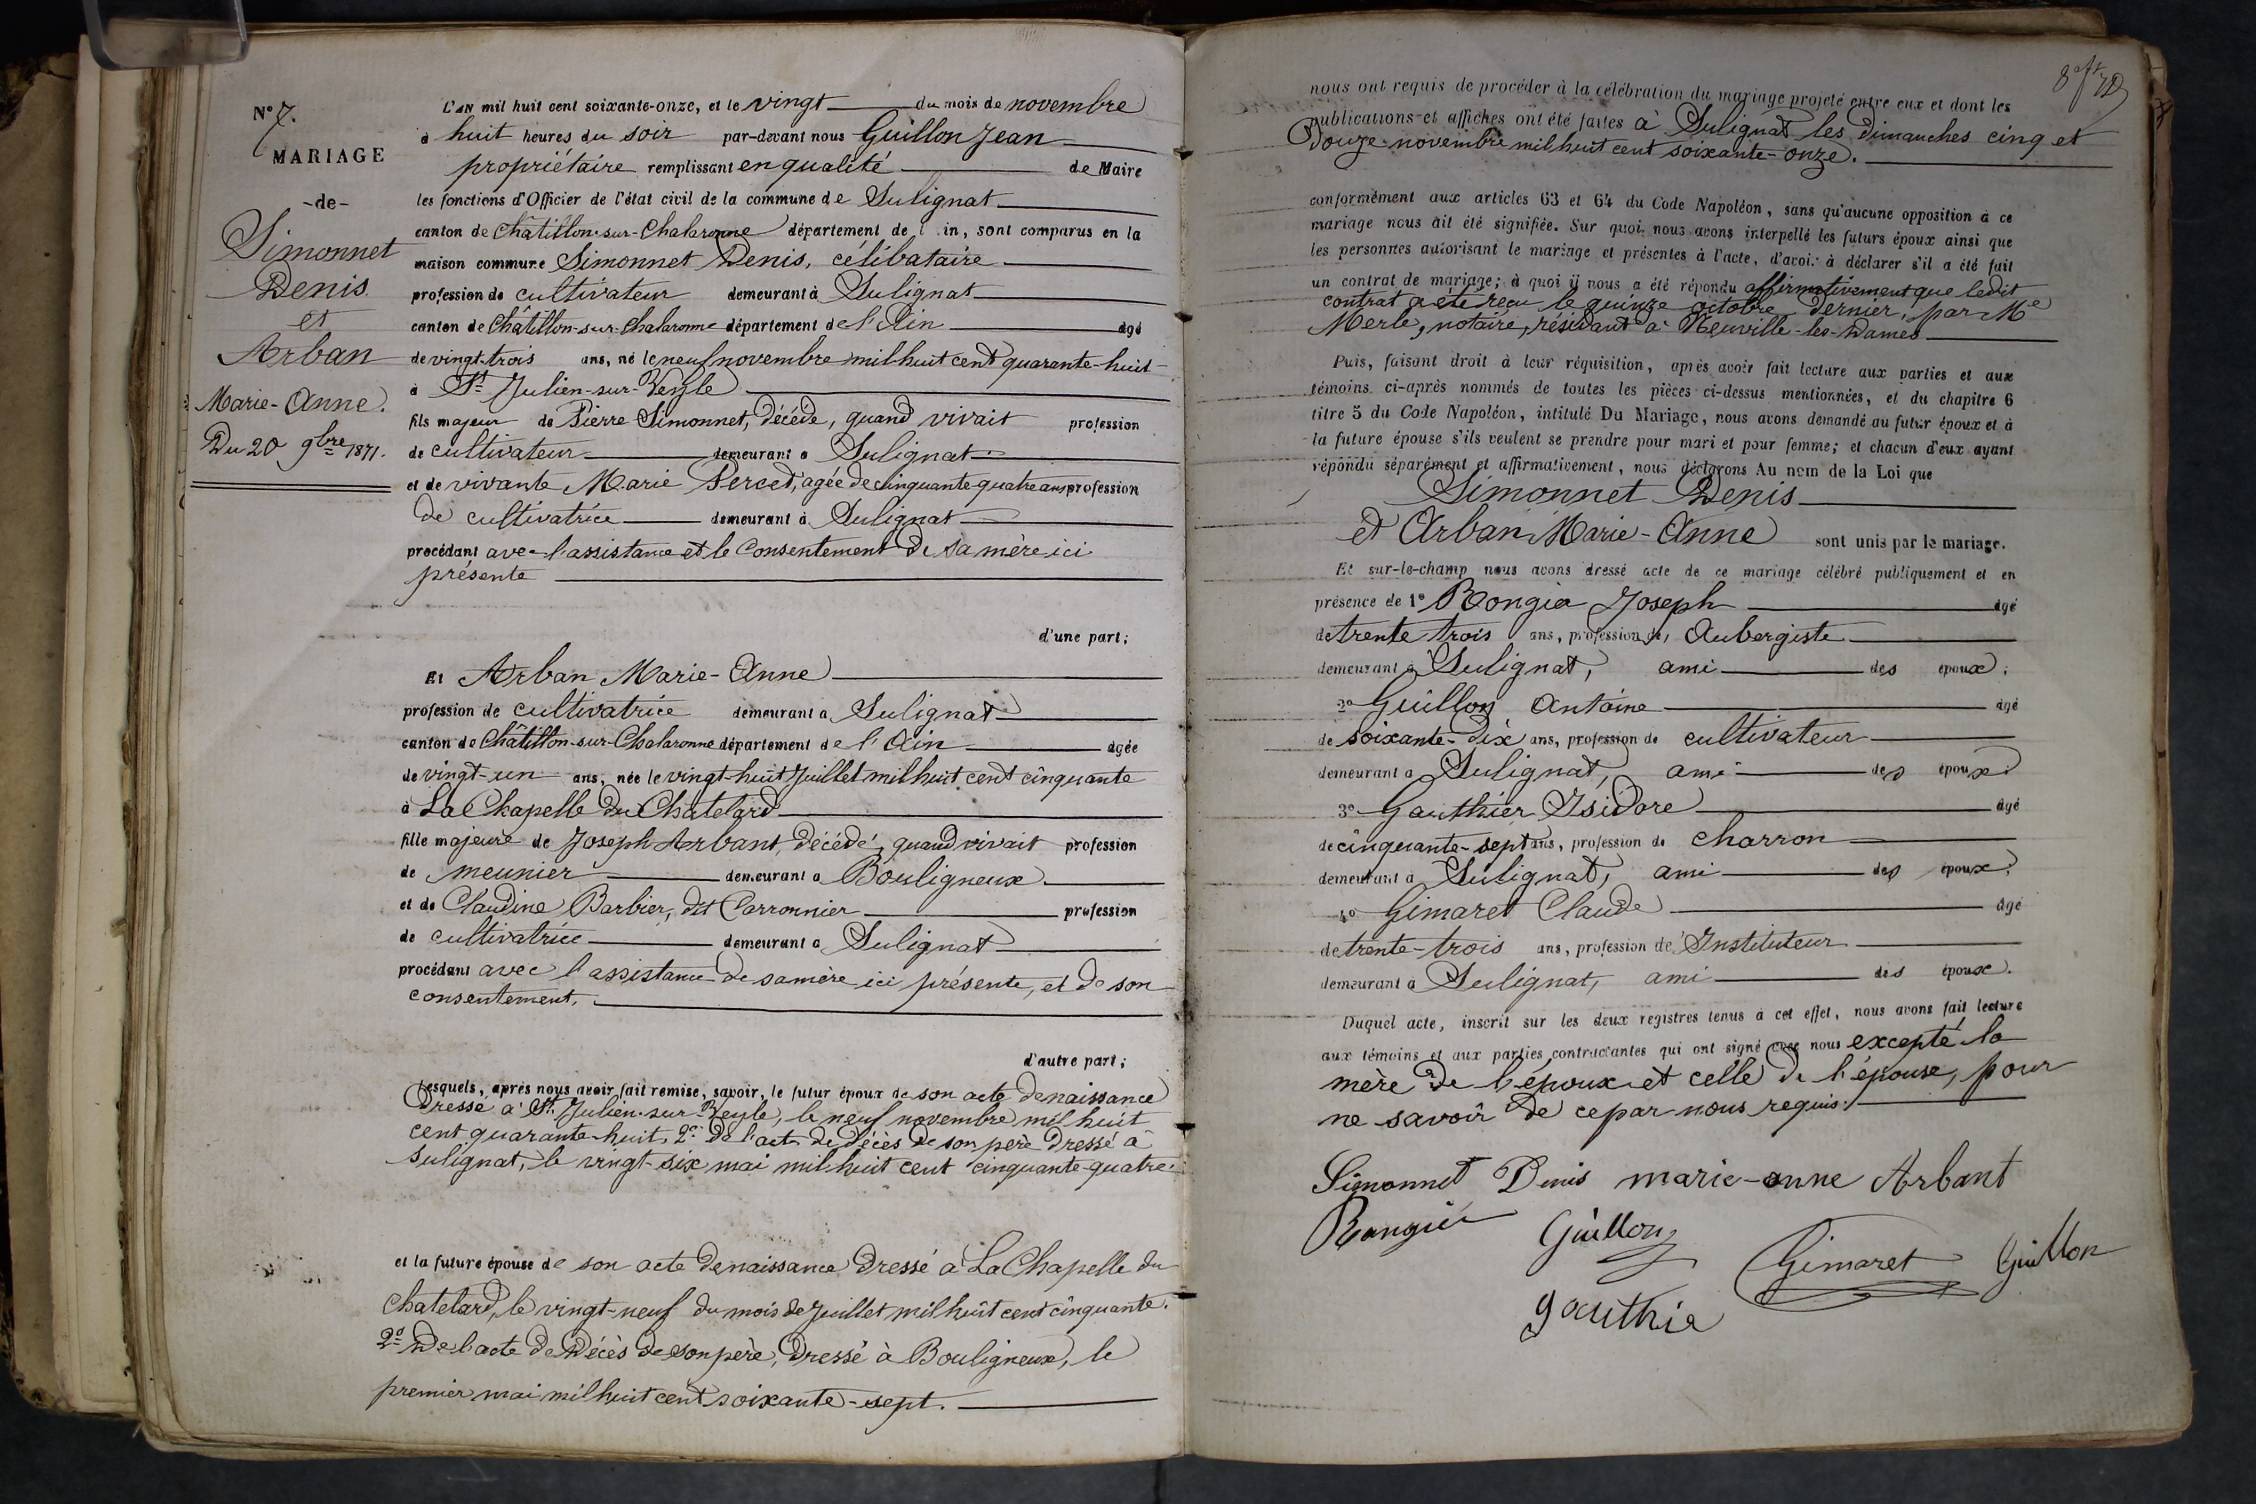 N° 7.
MARIAGE
-de-
Simonnet
Denis
et
Arban
Marie-Anne.
Du 20 9bre 1871.
L'AN mil huit cent soixante-onze, et le vingt du mois de novembre
à huit heures du soir par-devant nous Guillon Jean
propriétaire remplissant en qualité de Maire
les fonctions d'Officier de l'état civil de la commune de Sulignat
canton de Châtillon-sur-Chalaronne département de l'Ain, sont comparus en la
maison commune Simonnet Denis, célibataire
profession de cultivateur demeurant à Sulignat
canton de Châtillon-sur-Chalaronne département de l'Ain âgé
de vingt-trois ans, né le neuf novembre mil huit cent quarante-huit
à St Julien-sur-Veyle
fils majeur de Pierre Simonnet, décédé, quand vivait profession
de cultivateur demeurant à Sulignat
et de vivante Marie Percet, agée de cinquante-quatre ans profession
de cultivatrice demeurant à Sulignat
procédant avec l'assistance et le consentement de sa mère ici
présente
d'une part;
Et Arban Marie-Anne
profession de cultivatrice demeurant à Sulignat
canton de Châtillon-sur-Chalaronne département de l'Ain âgée
de vingt-un ans, née le vingt-huit Juillet mil huit cent cinquante
à La Chapelle du Chatelard
fille majeure de Joseph Arbant, décédé, quand vivait profession
de meunier demeurant à Bouligneux
et de Claudine Barbier, dit Carronnier profession
de cultivatrice demeurant à Sulignat
procédant avec l'assistance de sa mère ici présente, et de son
consentement.
d'autre part;
Lesquels, après nous avoir fait remise, savoir, le futur époux de son acte de naissance
dressé à St Julien-sur-Veyle, le neuf novembre mil huit
cent quarante-huit, 2° de l'acte de décès de son père dressé à
Sulignat, le vingt-six mai mil huit cent cinquante-quatre.
et la future épouse de son acte de naissance dressé à La Chapelle du
Chatelard, le vingt-neuf du mois de Juillet mil huit cent cinquante.
2° De l'acte de Décès de son père, dressé à Bouligneux, le
premier mai mil huit cent soixante-sept.
nous ont requis de procéder à la célébration du mariage projeté entre eux et dont les
publications et affiches ont été faites à Sulignat les dimanches cinq et
Douze novembre mil huit cent soixante-onze.
conformément aux articles 63 et 64 du Code Napoléon, sans qu'aucune opposition à ce
mariage nous ait été signifiée. Sur quoi nous avons interpellé les futurs époux ainsi que
les personnes autorisant le mariage et présentes à l'acte, d'avoir à déclarer s'il a été fait
un contrat de mariage; à quoi il nous a été répondu affirmativement que ledit
contrat a été reçu le quinze octobre dernier, par Me
Merle, notaire, résidant à Neuville-les-Dames
Puis, faisant droit à leur réquisition, après avoir fait lecture aux parties et aux
témoins ci-après nommés de toutes les pièces ci-dessus mentionnées, et du chapitre 6
titre 5 du Code Napoléon, intitulé Du Mariage, nous avons demandé au futur époux et à
la future épouse s'ils veulent se prendre pour mari et pour femme; et chacun d'eux ayant
répondu séparément et affirmativement, nous déclarons Au nom de la Loi que
Simonnet Denis
et Arban Marie-Anne sont unis par le mariage.
Et sur-le-champ nous avons dressé acte de ce mariage célébré publiquement et en
présence de 1° Rongier Joseph âgé
de trente trois ans, profession de, Aubergiste
demeurant à Sulignat, ami des époux;
2° Guillon Antoine âgé
de soixante-dix ans, profession de cultivateur
demeurant à Sulignat, ami des époux;
3° Gauthier Isidore âgé
de cinquante-sept ans, profession de charron
demeurant à Sulignat, ami des époux;
4° Gimaret Claude âgé
de trente-trois ans, profession de Instituteur
demeurant à Sulignat, ami des époux.
Duquel acte, inscrit sur les deux registres tenus à cet effet, nous avons fait lecture
aux témoins et aux parties contractantes qui ont signé avec nous excepté la
mère de l'époux et celle de l'épouse, pour
ne savoir de ce par nous requis.
Simonnet Denis marie-anne Arbant
Rongier Guillon Gimaret Guillon
gauthie